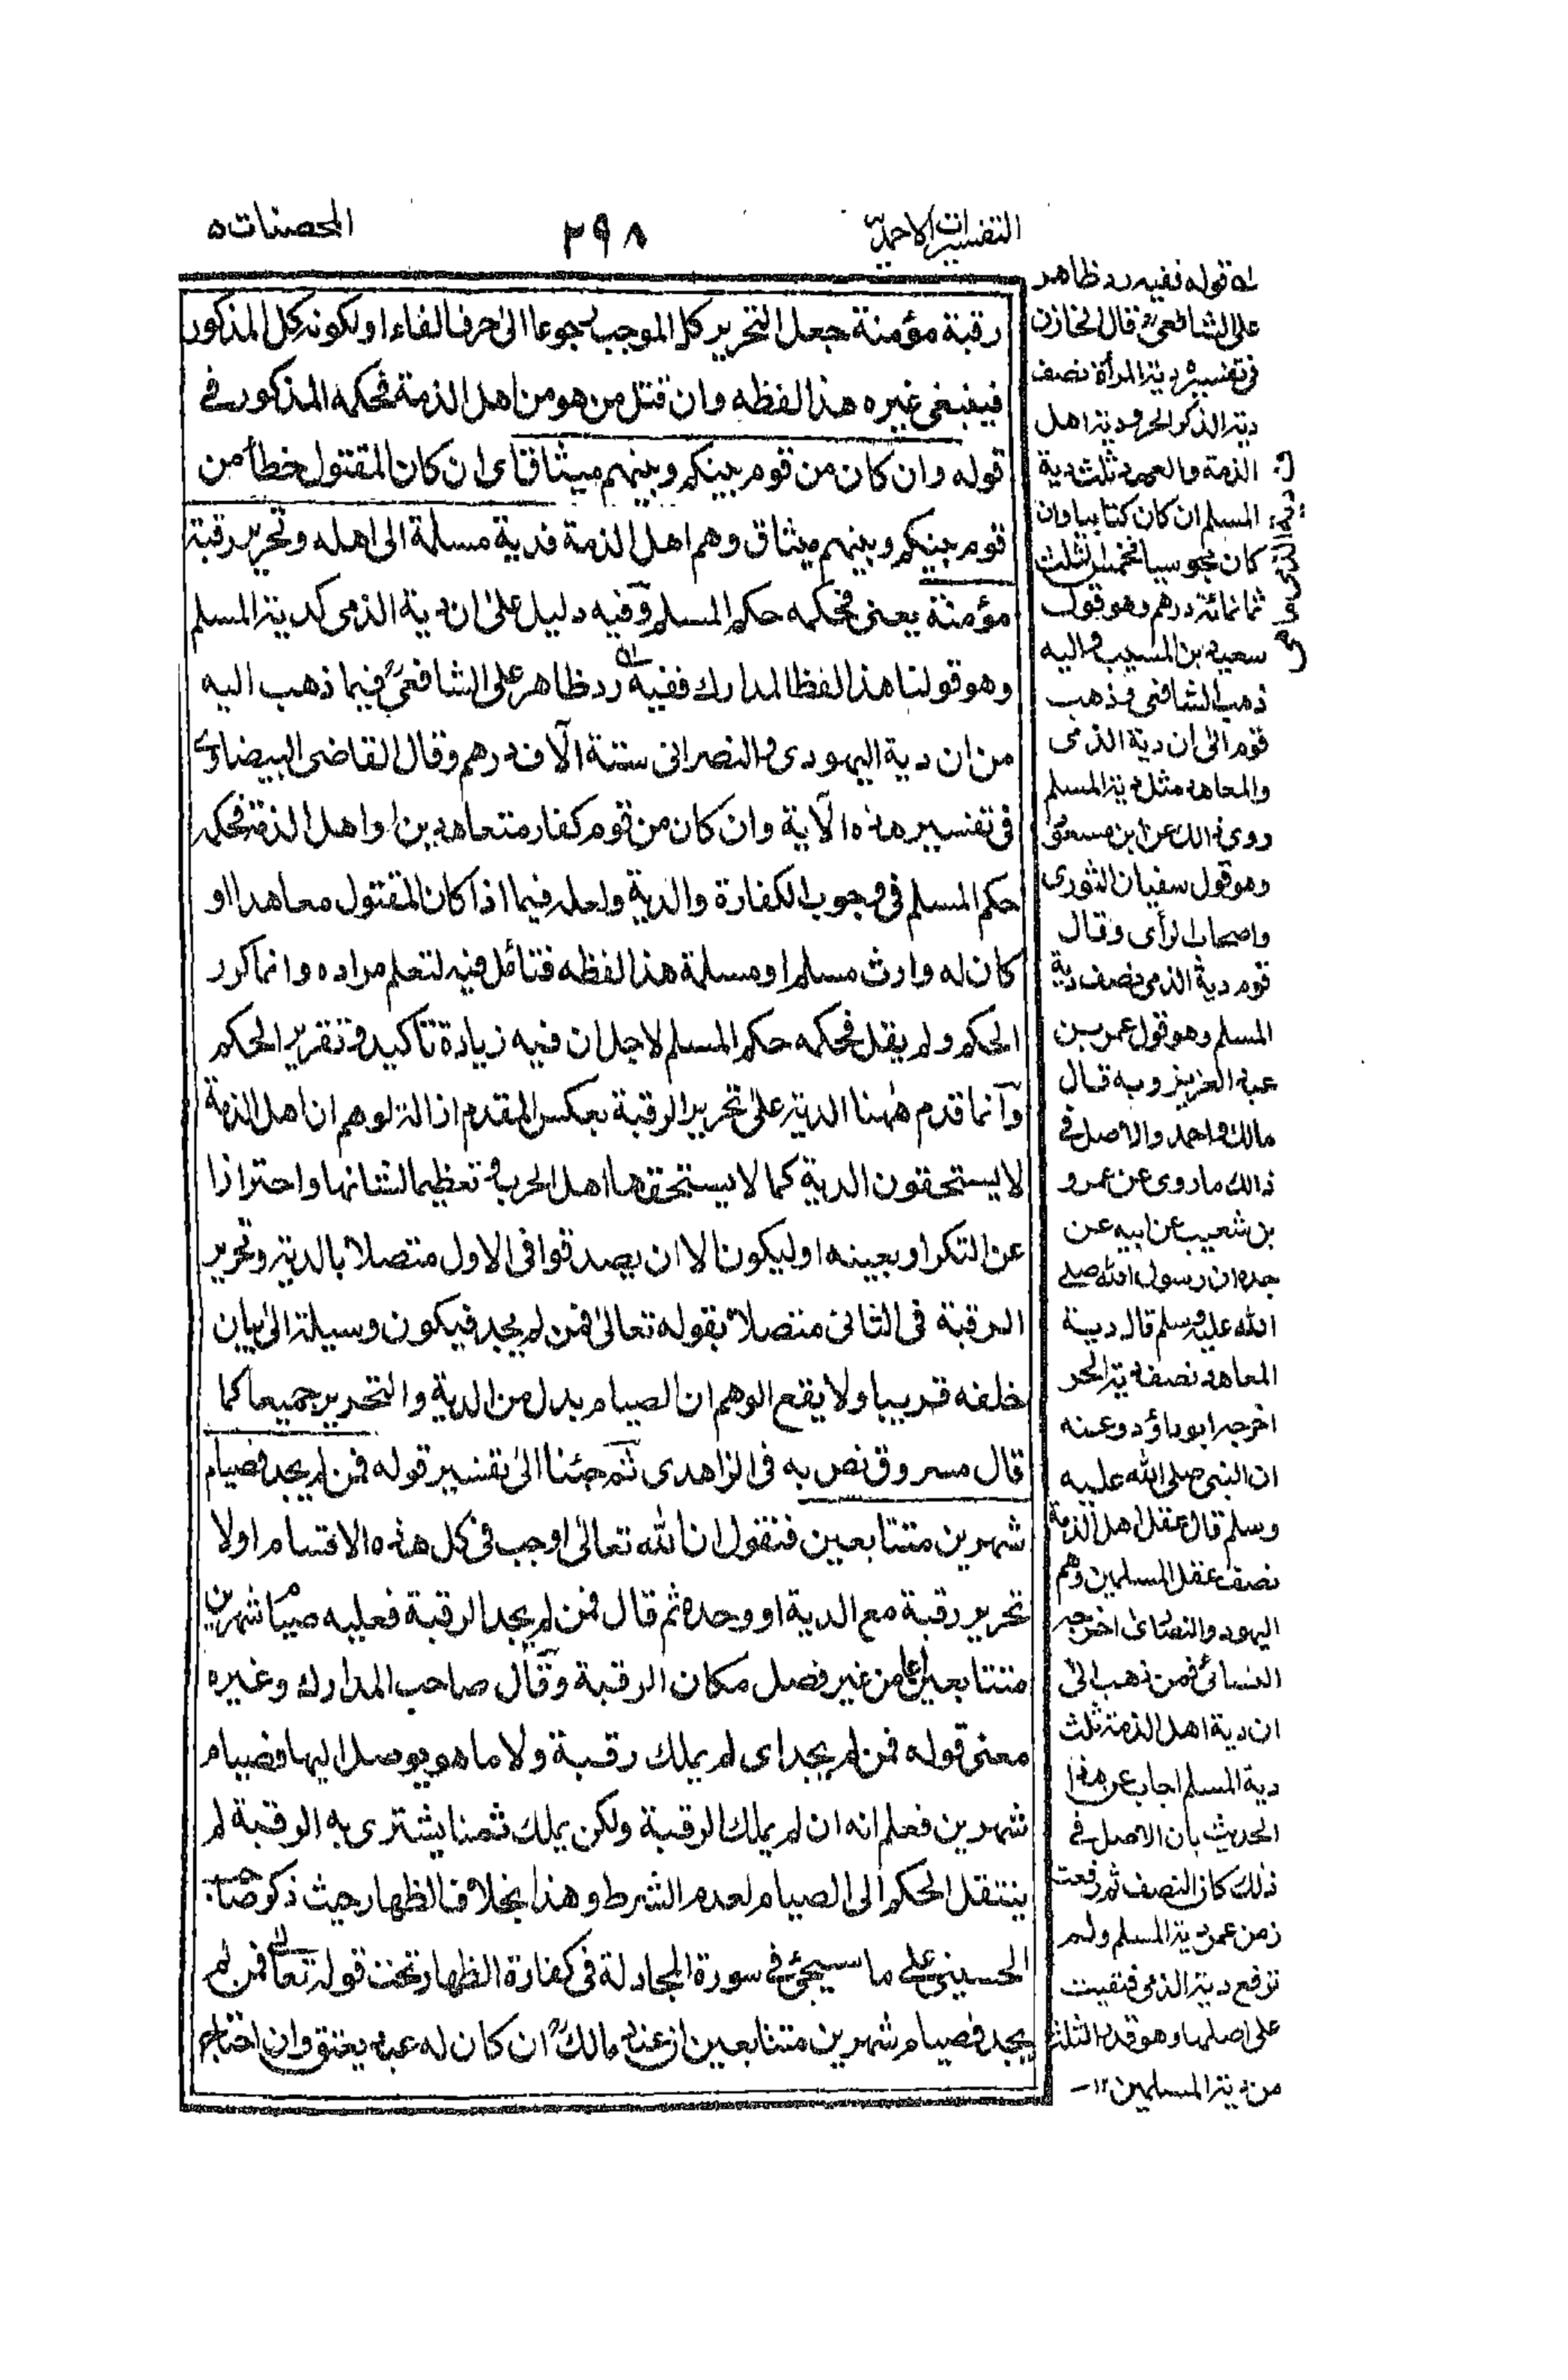 التفسيرات الاحمدية
٢٩٨
المحصنات ٥
رقبة مؤمنة جعل التحرير كل الموجب رجوعا الى حرف الفاء او لكونه كل المذكور
فينبغى غيره هذا لفظه وان قتل من هو من اهل الذمة فحكمه المذكور فى
قوله وان كان من قوم بينكم وبينهم ميثاق اى ان كان المقتول خطأ من
قوم بينكم وبينهم ميثاق وهم اهل الذمة فدية مسلمة الى اهله وتحرير رقبة
مؤمنة يعنى فحكمه حكم المسلم وفيه دليل على ان دية الذمى كدية المسلم
وهو قولنا هذا لفظ المدارك ففيه رد ظاهر على الشافعىؒ فيما ذهب اليه
من ان دية اليهودى والنصرانى ستة آلاف درهم وقال القاضى البيضاوى
فى تفسير هذه الآية وان كان من قوم كفار متعاهدين او اهل الذمة فحكمه
حكم المسلم فى وجوب الكفارة والدية ولعله فيما اذا كان المقتول معاهدا او
كان له وارث مسلم او مسلمة هذا لفظه فتأمل فيه لتعلم مراده وانما كرر
الحكم ولم يقل فحكمه حكم المسلم لاجل ان فيه زيادة تاكيد وتقرير الحكم
وانما قدم ههنا الدية على تحرير الرقبة بعكس المقدم ازالة لوهم ان اهل الذمة
لا يستحقون الدية كما لا يستحقها اهل الحرب وتعظيما لشانها واحترازا
عن التكرار بعينه او ليكون الا ان يصدقوا فى الاول متصلا بالدية وتحرير
الرقبة فى الثانى متصلا بقوله تعالى فمن لم يجد فيكون وسيلة الى بيان
خلفه قريبا ولا يقع الوهم ان الصيام بدل من الدية والتحرير جميعا كما
قال مسروق نص به فى الزاهدى ثم جئنا الى تفسير قوله فمن لم يجد فصيام
شهرين متتابعين فنقول ان الله تعالى اوجب فى كل هذه الاقسام اولا
تحرير رقبة مع الدية او وحده ثم قال فمن لم يجد الرقبة فعليه صيام شهرين
متتابعين اى من غير فصل مكان الرقبة وقال صاحب المدارك وغيره
معنى قوله فمن لم يجد اى لم يملك رقبة ولا ما هو يوصل اليها فصيام
شهرين فعلم انه ان لم يملك الرقبة ولكن يملك ثمنا يشترى به الرقبة لم
ينتقل الحكم الى الصيام لعدم الشرط وهذا بخلاف الظهار حيث ذكر صاحب
الحسينى على ما سيجئ فى سورة المجادلة فى كفارة الظهار تحت قوله تعالى فمن لم
يجد فصيام شهرين متتابعين ان عند مالكؒ ان كان له عبد يعتق وان احتاج
له قوله ففيه رد ظاهر
على الشافعىؒ قال الخازن
فى تفسيره دية المرأة نصف
دية الذكر الحر ودية اهل
الذمة والعهد ثلث دية
المسلم ان كان كتابيا وان
كان مجوسيا فخمس الثلث
ثمانمائة درهم وهو قول
سعيد بن المسيب واليه
ذهب الشافعى وذهب
قوم الى ان دية الذمى
والمعاهد مثل دية المسلم
روى ذالك عن ابن مسعود
وهو قول سفيان الثورى
واصحاب الرأى وقال
قوم دية الذمى نصف دية
المسلم وهو قول عمر بن
عبد العزيز وبه قال
مالك واحمد والاصل فى
ذالك ما روى عن عمرو
بن شعيب عن ابيه عن
جده ان رسول الله صلى
الله عليه وسلم قال دية
المعاهد نصف دية الحر
اخرجه ابو داؤد وعنه
ان النبى صلى الله عليه
وسلم قال عقل اهل الذمة
نصف عقل المسلمين وهم
اليهود والنصارى اخرجه
النسائى فمن ذهب الى
ان دية اهل الذمة ثلث
دية المسلم اجاب عن هذا
الحديث بان الاصل فى
ذلك كان النصف ثم رفعت
زمن عمر دية المسلم ولم
ترفع دية الذمى فبقيت
على اصلها وهو قدر الثلث
من دية المسلمين ١٢-